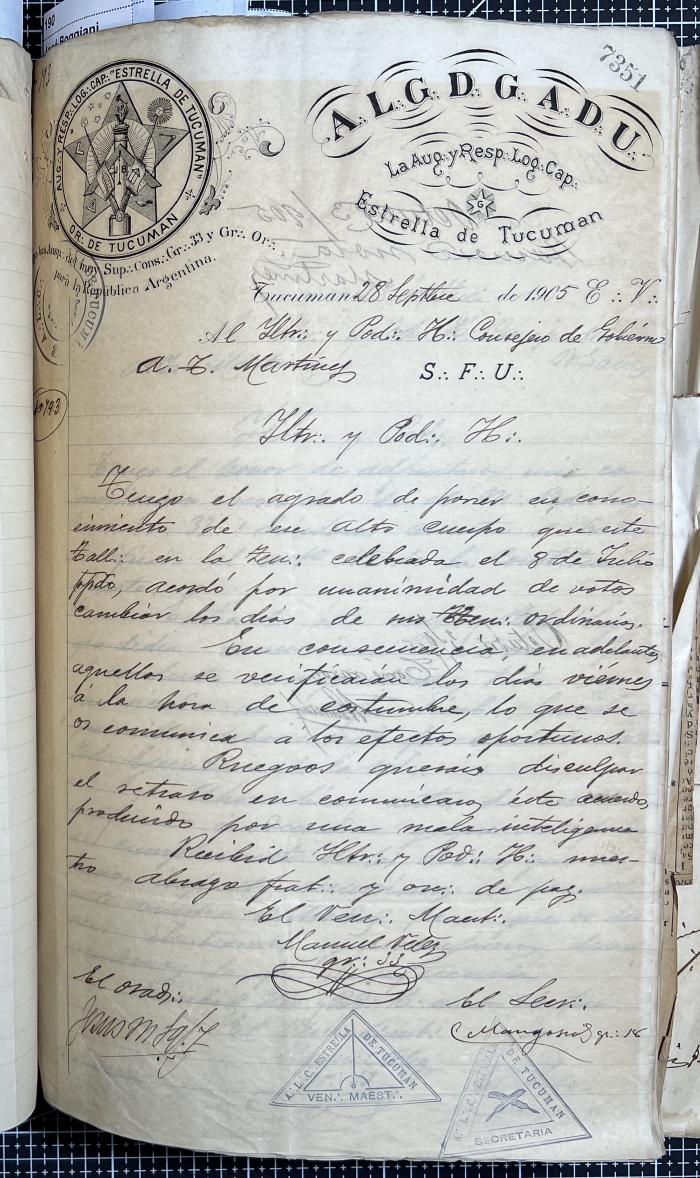 190
7351
AUG.·. Y RESP.·. LOG.·. CAP.·. "ESTRELLA DE TUCUMAN"
OR.·. DE TUCUMAN
A.L.G.D.G.A.D.U.
La Aug.·. y Resp.·. Log.·. Cap.·.
G
Estrella de Tucuman
del muy Sup.·. Cons.·. Gr.·. 33 y Gr.·. Or.·.
para la República Argentina.
Tucuman 28 Septbre de 1905 E.·. V.·.
Al Iltr.·. y Pod.·. H.·. Consejero de Gobierno
A. T. Martinez S.·. F.·. U.·.
Iltr.·. y Pod.·. H.·.
Tengo el agrado de poner en cono-
cimiento de ese alto cuerpo que este
Tall.·. en la Ten.·. celebrada el 8 de Julio
ppdo, acordó por unanimidad de votos
cambiar los dias de sus Ten.·. ordinarias.
En consecuencia en adelante,
aquellas se verificarán los dias viérnes
á la hora de costumbre, lo que se
os comunica a los efectos oportunos.
Rogamos querais disculpar
el retraso en comunicaros éste acuerdo,
producido por una mala inteligencia
Recibid Iltr.·. y Pod.·. H.·. nues-
tro abrazo frat.·. y os.·. de paz.
El Ven.·. Maest.·.
Manuel Velez
gr.·. 33
El orad.·.
El Secr.·.
gr.·. 18
A.·. L.·. C.·. ESTRELLA DE TUCUMAN
VEN.·. MAEST.·.
A.·. L.·. C.·. ESTRELLA DE TUCUMAN
SECRETARIA